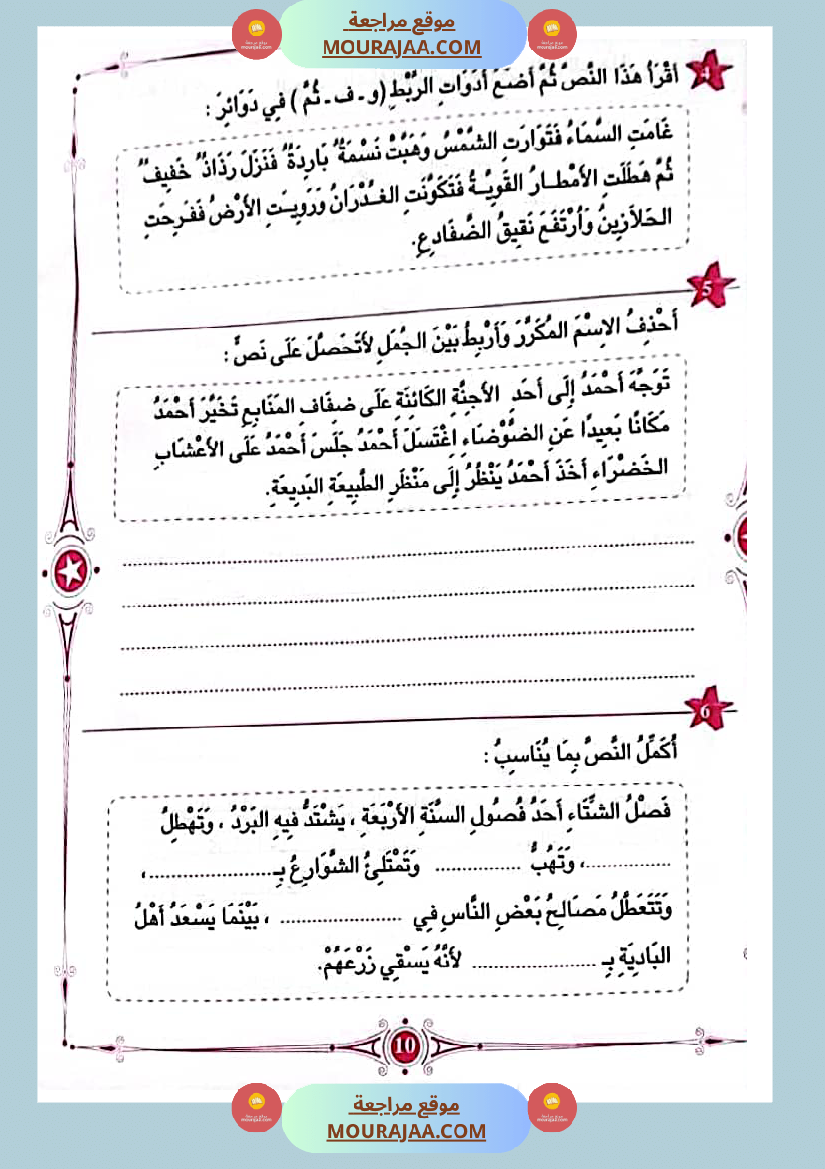 موقع مراجعة
MOURAJAA.COM
4
أَقْرَأُ هَذَا النَّصَّ ثُمَّ أَضَعُ أَدَوَاتِ الرَّبْطِ (و - ف - ثُمَّ ) فِي دَوَائِرَ :
غَامَتِ السَّمَاءُ فَتَوَارَتِ الشَّمْسُ وَهَبَّتْ نَسْمَةٌ بَارِدَةٌ فَنَزَلَ رَذَاذٌ خَفِيفٌ
ثُمَّ هَطَلَتِ الأَمْطَـارُ القَوِيَّـةُ فَتَكَوَّنَتِ الغُـدْرَانُ وَرَوِيَـتِ الأَرْضُ فَفَـرِحَتِ
الـحَلاَزِينُ وَاُرْتَفَعَ نَقِيقُ الضَّفَادِعِ.
5
أَحْذِفُ الاِسْمَ المُكَرَّرَ وَأَرْبِطُ بَيْنَ الـجُمَلِ لأَتَحَصَّلَ عَلَى نَصٍّ :
تَوَجَّهَ أَحْمَدُ إِلَى أَحَدِ الأَجِنَّةِ الكَائِنَةِ عَلَى ضِفَافِ المَنَابِعِ تَخَيَّرَ أَحْمَدُ
مَكَانًا بَعِيدًا عَنِ الضَّوْضَاءِ اِغْتَسَلَ أَحْمَدُ جَلَسَ أَحْمَدُ عَلَى الأَعْشَابِ
الـخَضْرَاءِ أَخَذَ أَحْمَدُ يَنْظُرُ إِلَى مَنْظَرِ الطَّبِيعَةِ البَدِيعَةِ.
6
أُكَمِّلُ النَّصَّ بِمَا يُنَاسِبُ :
فَصْلُ الشِّتَاءِ أَحَدُ فُصُولِ السَّنَةِ الأَرْبَعَةِ ، يَشْتَدُّ فِيهِ البَرْدُ ، وَتَهْطِلُ
................، وَتَهُبُّ ................ وَتَمْتَلِئُ الشَّوَارِعُ بِـ.......................،
وَتَتَعَطَّلُ مَصَالِحُ بَعْضِ النَّاسِ فِي ....................... ، بَيْنَمَا يَسْعَدُ أَهْلُ
البَادِيَةِ بِـ ....................... لأَنَّهُ يَسْقِي زَرْعَهُمْ.
10
موقع مراجعة
MOURAJAA.COM